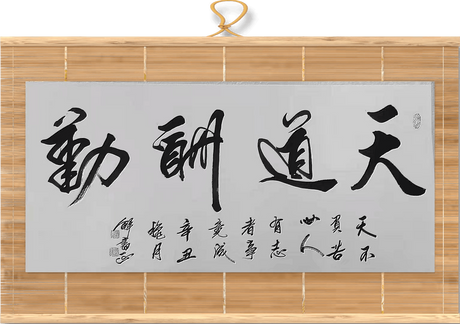 天道酬勤
天不
負苦
心人
有志
者事
竟成
辛丑
月